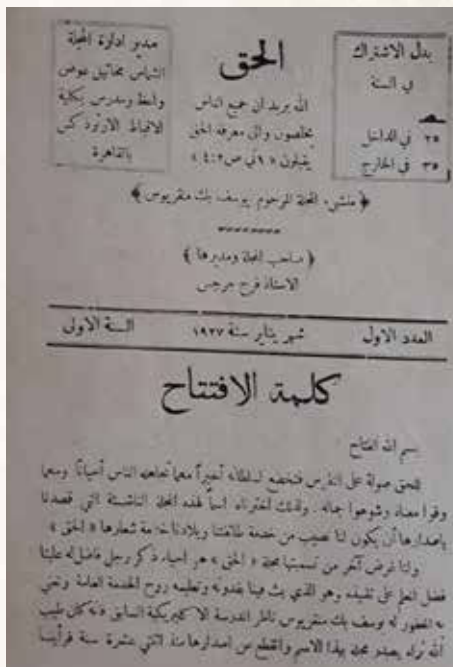 بدل الاشتراك
في السنة
٢٥ في الداخل
٣٥ في الخارج
الحق
الله يريد ان جميع الناس
يخلصون والى معرفة الحق
يقبلون « ١ تي ص ٢ : ٤ »
مدير ادارة المجلة
الشماس ميخائيل عوض
واعظ ومدرس بكلية
الاقباط الارثوذكس
بالقاهرة
﴿ منشيء المجلة المرحوم يوسف بك منقريوس ﴾
﴿ صاحب المجلة ومديرها ﴾
الاستاذ فرج جرجس
العدد الاول شهر يناير سنة ١٩٢٧ السنة الاولى
كلمة الافتتاح
بسم الله الفتاح
للحق صولة على النفوس فتخضع لسلطانه أخيراً مهما تجاهله الناس أحياناً ومهما
وقروا مضاء وشوهوا جماله . ولذلك اخترناه اسماً لهذه المجلة الناشئة التي قصدنا
باصدارها أن يكون لنا نصيب من خدمة طائفتنا وبلادنا خدمة شعارها « الحق »
ولنا غرض آخر من تسميتها مجلة « الحق » هو احياء ذكر رجل فاضل له علينا
فضل المعلم على تلميذه وهو الذي بث فينا بقدوته وتعليمه روح الخدمة العامة ونعني
به المغفور له يوسف بك منقريوس ناظر المدرسة الاكليريكية السابق فانه كان طيب
الله ثراه يصدر مجلة بهذا الاسم وانقطع عن اصدارها منذ اثنتي عشرة سنة فرأينا